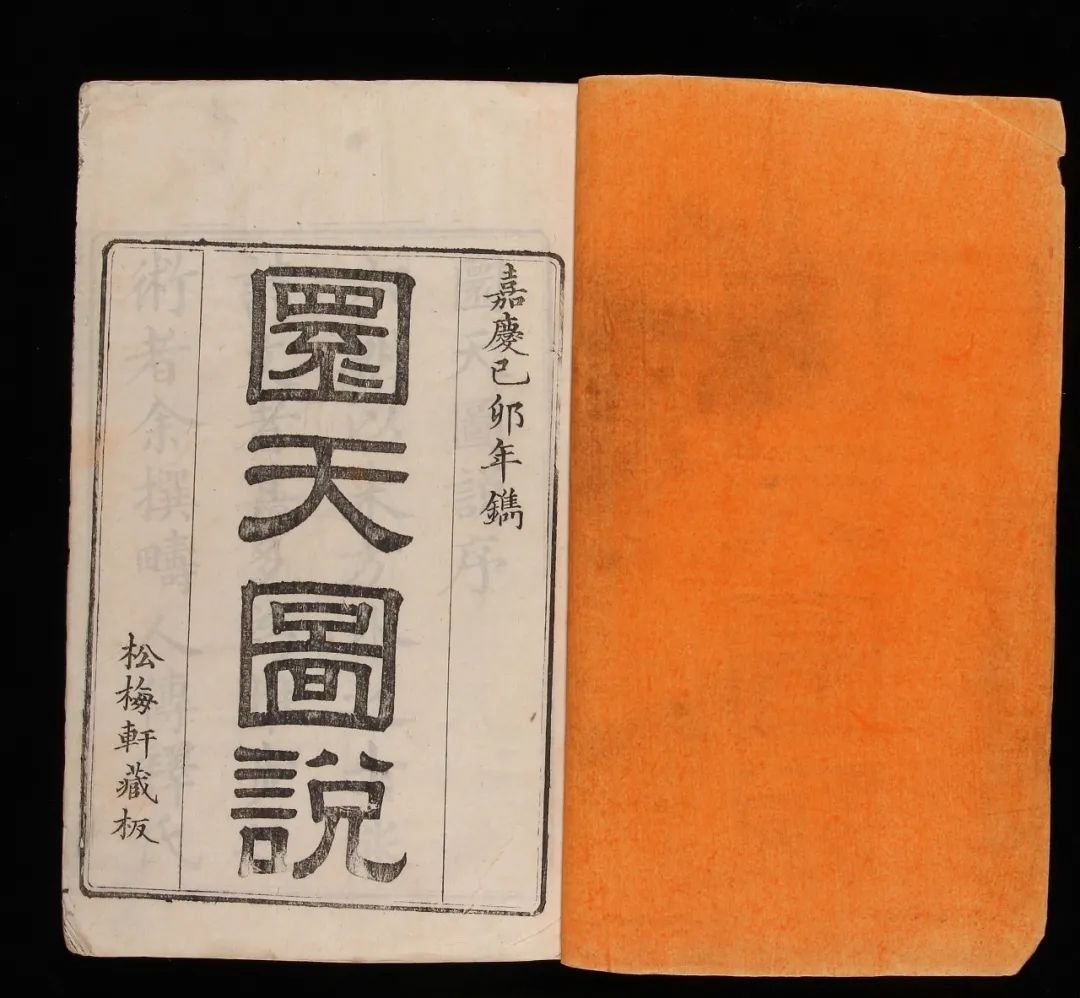 嘉慶己卯年鐫
圜天圖說
松梅軒藏板